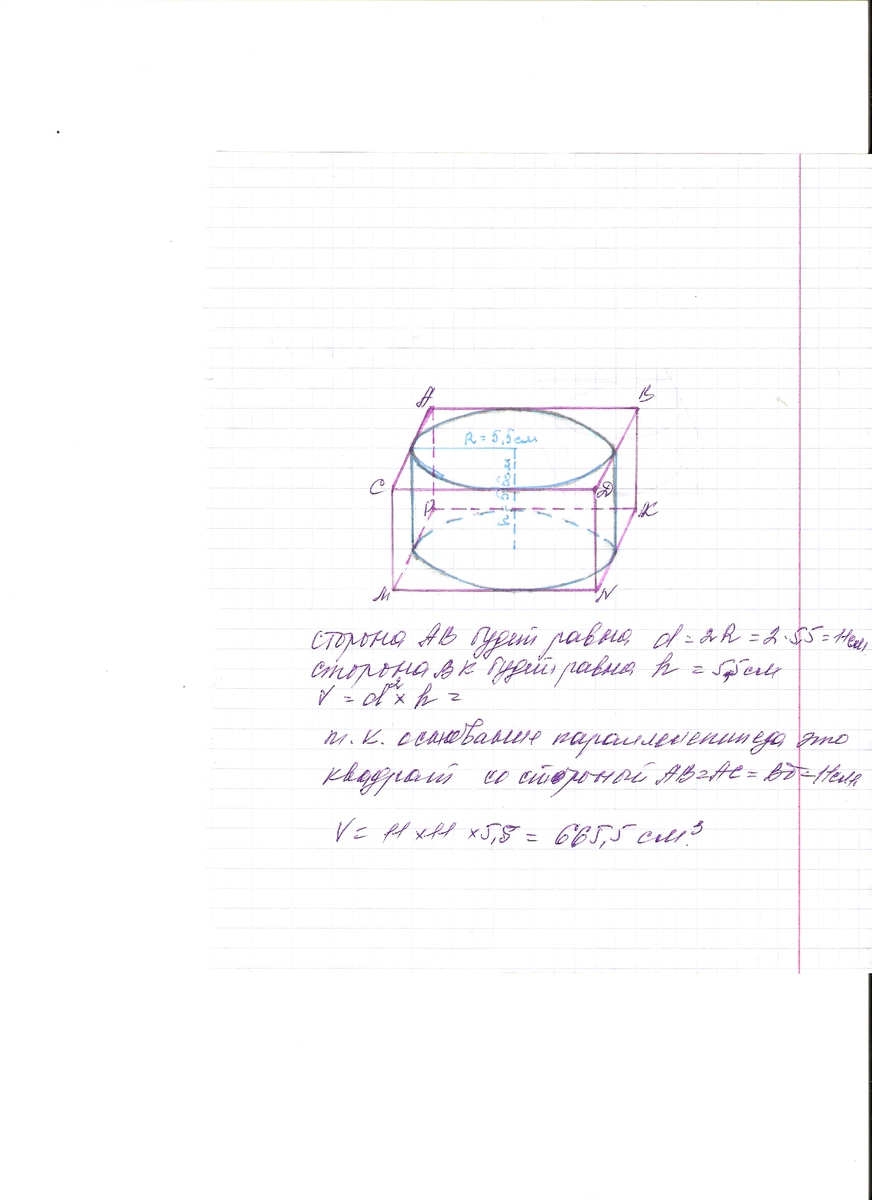 A B
R = 5,5 см
C D
h = 5,5 см
P K
M N
сторона AB будет равна d = 2R = 2·5,5 = 11 см
сторона BK будет равна h = 5,5 см
V = d² × h =
т. к. основание параллелепипеда это
квадрат со стороной AB = AC = BD = 11 см
V = 11 × 11 × 5,5 = 665,5 см³.